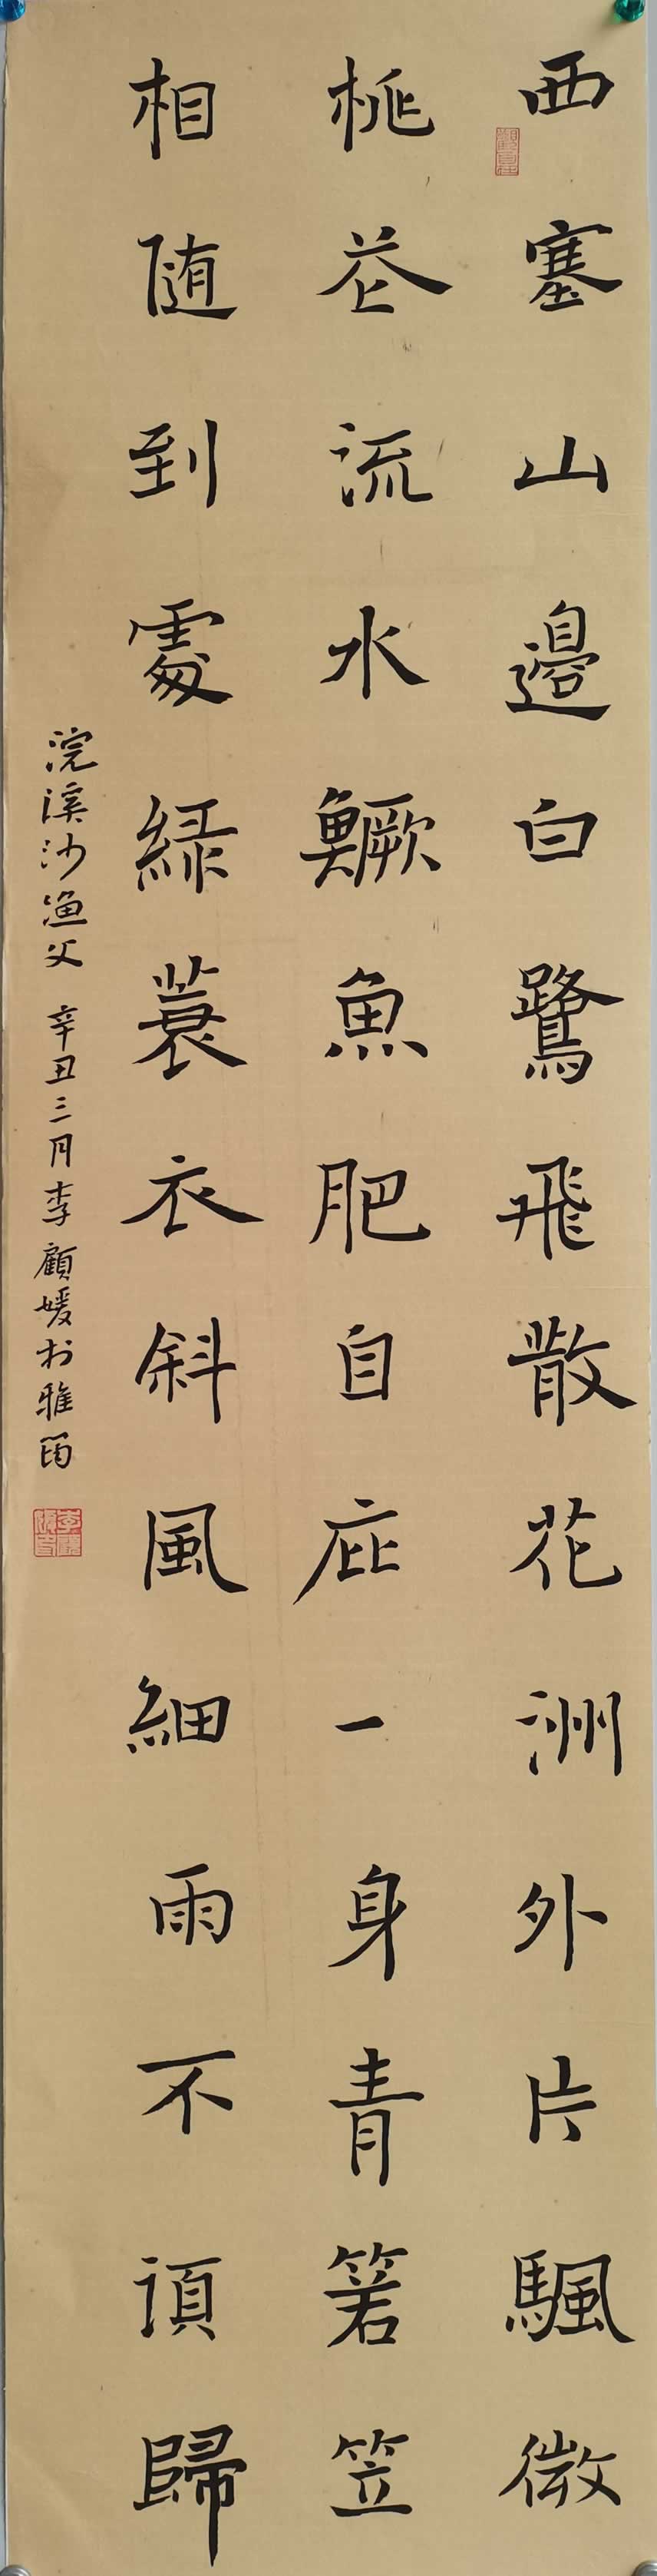 西塞山邊白鷺飛散花洲外片颿微
桃花流水鱖魚肥自庇一身青箬笠
相随到處緑蓑衣斜風細雨不須歸
浣溪沙渔父 辛丑三月李顧媛於雅